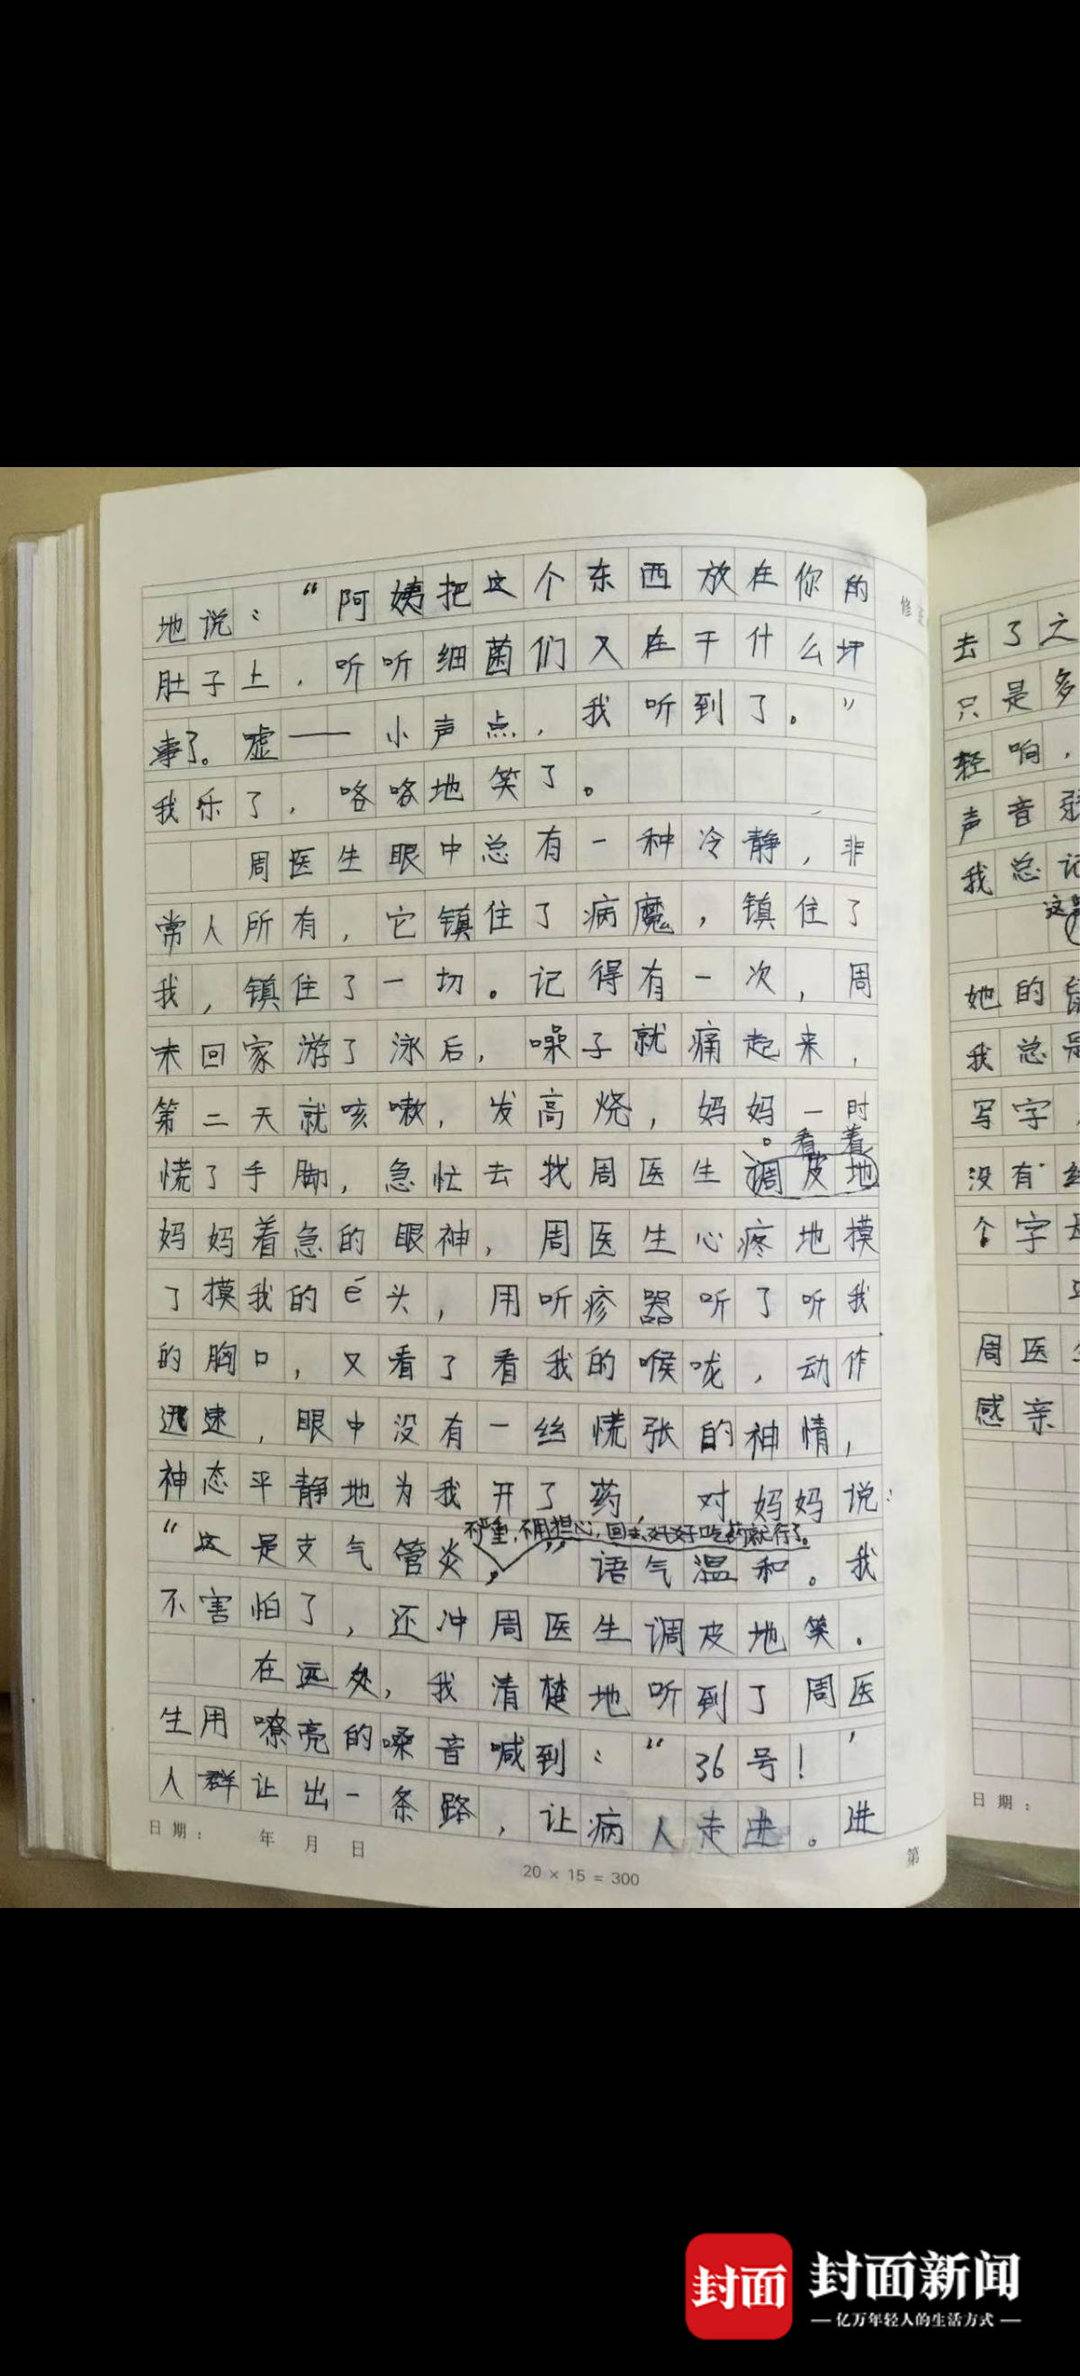 地说："阿姨把这个东西放在你的
肚子上，听听细菌们又在干什么坏
事了。嘘——小声点，我听到了。"
我乐了，咯咯地笑了。
周医生眼中总有一种冷静，非
常人所有，它镇住了病魔，镇住了
我，镇住了一切。记得有一次，周
末回家游了泳后，嗓子就痛起来，
第二天就咳嗽，发高烧，妈妈一时
。看着
慌了手脚，急忙去找周医生调皮地
妈妈着急的眼神，周医生心疼地摸
了摸我的é头，用听疹器听了听我
的胸口，又看了看我的喉咙，动作
迅速，眼中没有一丝慌张的神情，
神态平静地为我开了药，对妈妈说：
不严重，不用担心，回去好好吃药就行了。
"这是支气管炎，"语气温和。我
不害怕了，还冲周医生调皮地笑。
在远处，我清楚地听到了周医
生用嘹亮的嗓音喊到："36号！'
人群让出一条路，让病人走进。进
日期： 年 月 日
20 × 15 = 300
第
修
去了之
只是多
轻响，
声音
我总记
这
她的
我总是
写字
没有
个字
周医
感亲
日期：
封面
封面新闻
—亿万年轻人的生活方式—